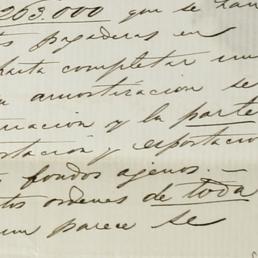 263.000 que se han
tos pagaderas en
hasta completar un
amortizacion se
uacion y la parte
ortacion y esportacio
fondos agenos. –
tos ordenes de toda
un parece se